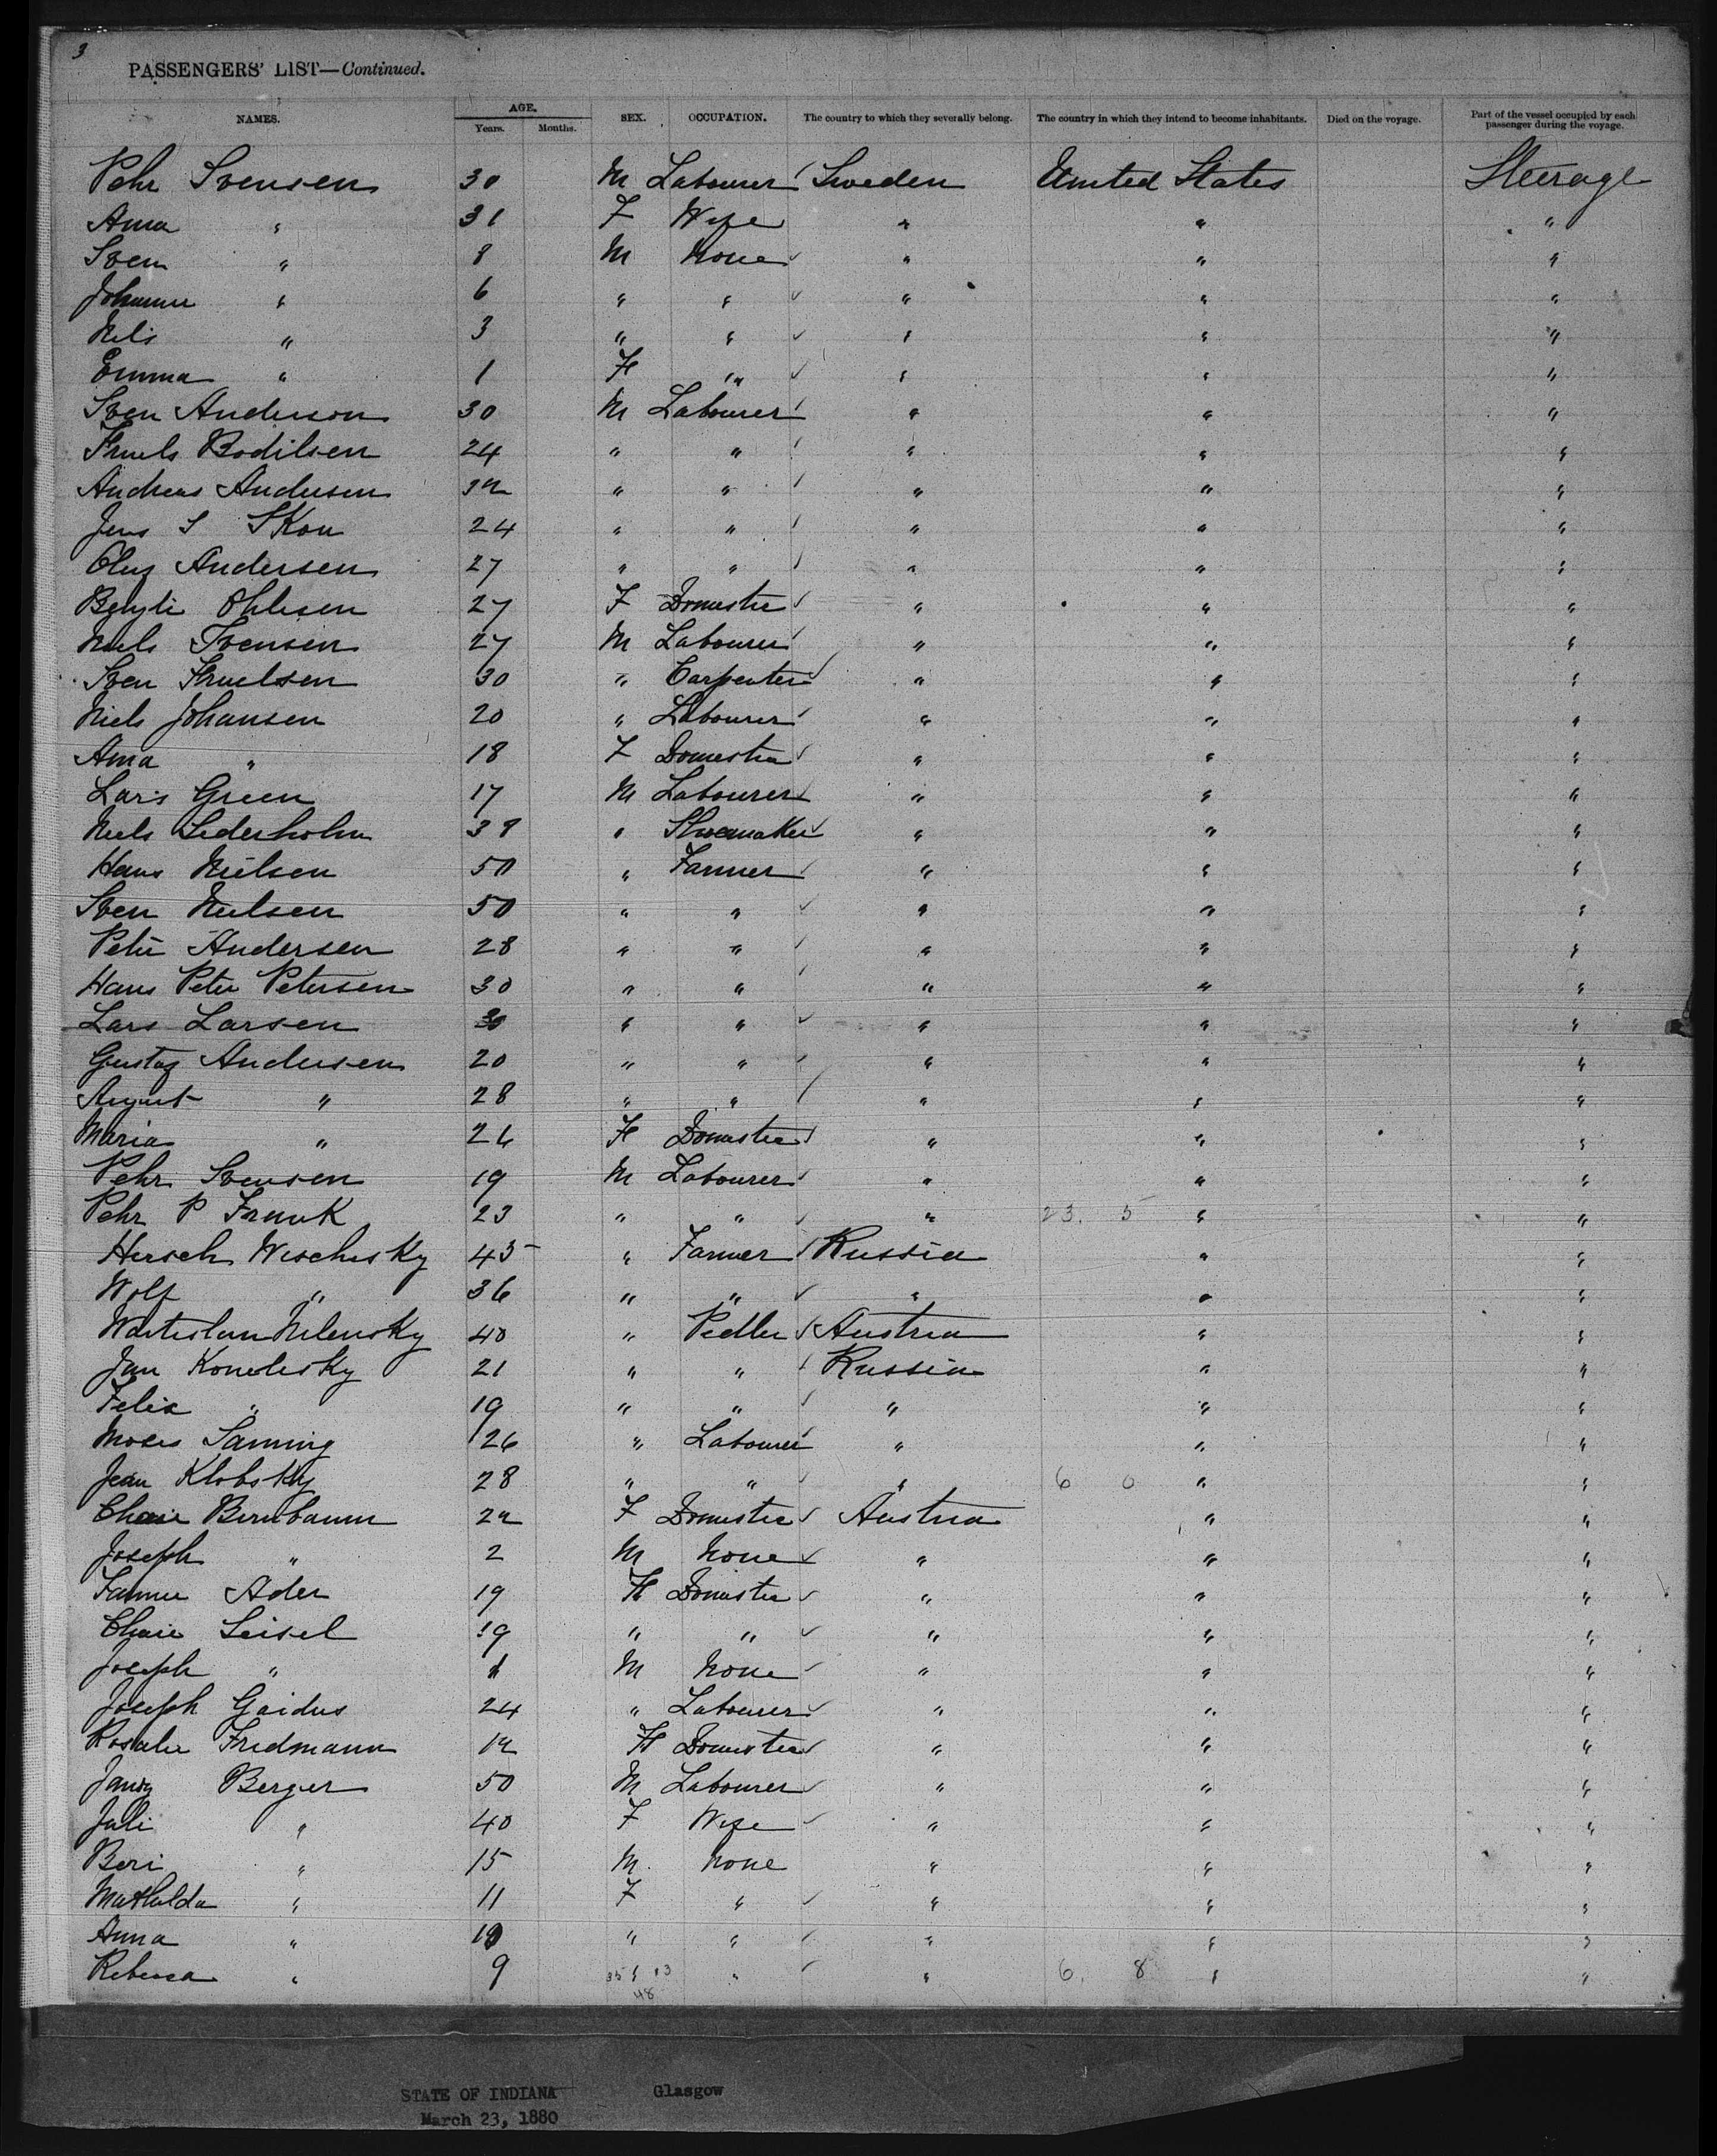 3
PASSENGERS' LIST—Continued.
NAMES. AGE. Years. Months. SEX. OCCUPATION. The country to which they severally belong. The country in which they intend to become inhabitants. Died on the voyage. Part of the vessel occupied by each passenger during the voyage.
Pehr Svensen 30 M Labourer Sweden United States Steerage
Anna " 31 F Wife " " "
Sven " 8 M None " " "
Johanne " 6 " " " " "
Nels " 3 " " " " "
Emma " 1 F " " " "
Sven Anderson 30 M Labourer " " "
Truels Bodilsen 24 " " " " "
Andreas Andersen " " " " "
Jens S Skou 24 " " " " "
Oluf Andersen 27 " " " " "
Ohlesen 27 F Domestic " " "
Niels Svensen 27 M Labourer " " "
Sven Truelsen 30 " Carpenter " " "
Niels Johansen 20 " Labourer " " "
Anna " 18 F Domestic " " "
Lars Green 17 M Labourer " " "
Niels Lederholm 38 " Shoemaker " " "
Hans Nielsen 50 " Farmer " " "
Sven Nielsen 50 " " " " "
Peter Andersen 28 " " " " "
Hans Peter Petersen 30 " " " " "
Lars Larsen 30 " " " " "
Gustaf Andersen 20 " " " " "
August " 28 " " " " "
Maria " 26 F Domestic " " "
Pehr Svensen 19 M Labourer " " "
Pehr P Frank 23 " " " 23. 5 " "
Hersch Wischesky 45 " Farmer Russia " "
Wolf " 36 " " " " "
Nilensky 40 " Pedler Austria " "
Jan Konolesky 21 " " Russia " "
Felix " 19 " " " " "
Moses Sanning 26 " Labourer " " "
Jean Klobsky 28 " " " 6 0 " "
Chaie Bernbaum 22 F Domestic Austria " "
Joseph " 2 M None " " "
Fannie Ader 19 F Domestic " " "
Chaie Leisel 19 " " " " "
Joseph " 1 M None " " "
Joseph Gaidus 24 " Labourer " " "
Rosalie Fridmann F Domestic " " "
Berger 50 M Labourer " " "
Juli " 40 F Wife " " "
Beri " 15 M. None " " "
Mathalda " 11 F " " " "
Anna " 10 " " " " "
Rebecca " 9 35 " 13 " " 6. 8 " "
48
STATE OF INDIANA Glasgow
March 23, 1880